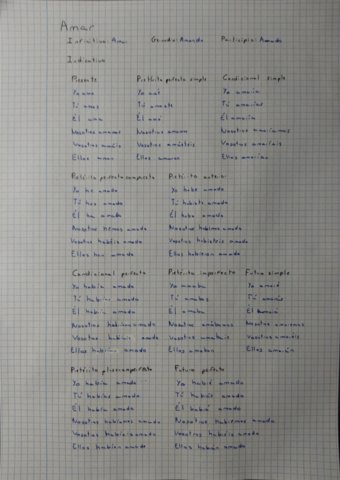 Amar
Infinitivo: Amar Gerundio: Amando Participio: Amado
Indicativo
Presente Pretérito perfecto simple Condicional simple
Yo amo Yo amé Yo amaría
Tú amas Tú amaste Tú amarías
Él ama Él amó Él amaría
Nosotros amamos Nosotros amamos Nosotros amaríamos
Vosotros amáis Vosotros amásteis Vosotros amaríais
Ellos aman Ellos amaron Ellos amarían
Pretérito perfecto compuesto Pretérito anterior
Yo he amado Yo hube amado
Tú has amado Tú hubiste amado
Él ha amado Él hubo amado
Nosotros hemos amado Nosotros hubimos amado
Vosotros habéis amado Vosotros hubisteis amado
Ellos han amado Ellos hubieron amado
Condicional perfecto Pretérito imperfecto Futuro simple
Yo habría amado Yo amaba Yo amaré
Tú habrías amado Tú amabas Tú amarás
Él habría amado Él amaba Él amará
Nosotros habríamos amado Nosotros amábamos Nosotros amaremos
Vosotros habríais amado Vosotros amabais Vosotros amaréis
Ellos habrían amado Ellos amaban Ellos amarán
Pretérito pluscuamperfecto Futuro perfecto
Yo había amado Yo habré amado
Tú habías amado Tú habrás amado
Él había amado Él habrá amado
Nosotros habíamos amado Nosotros habremos amado
Vosotros habíais amado Vosotros habréis amado
Ellos habían amado Ellos habrán amado